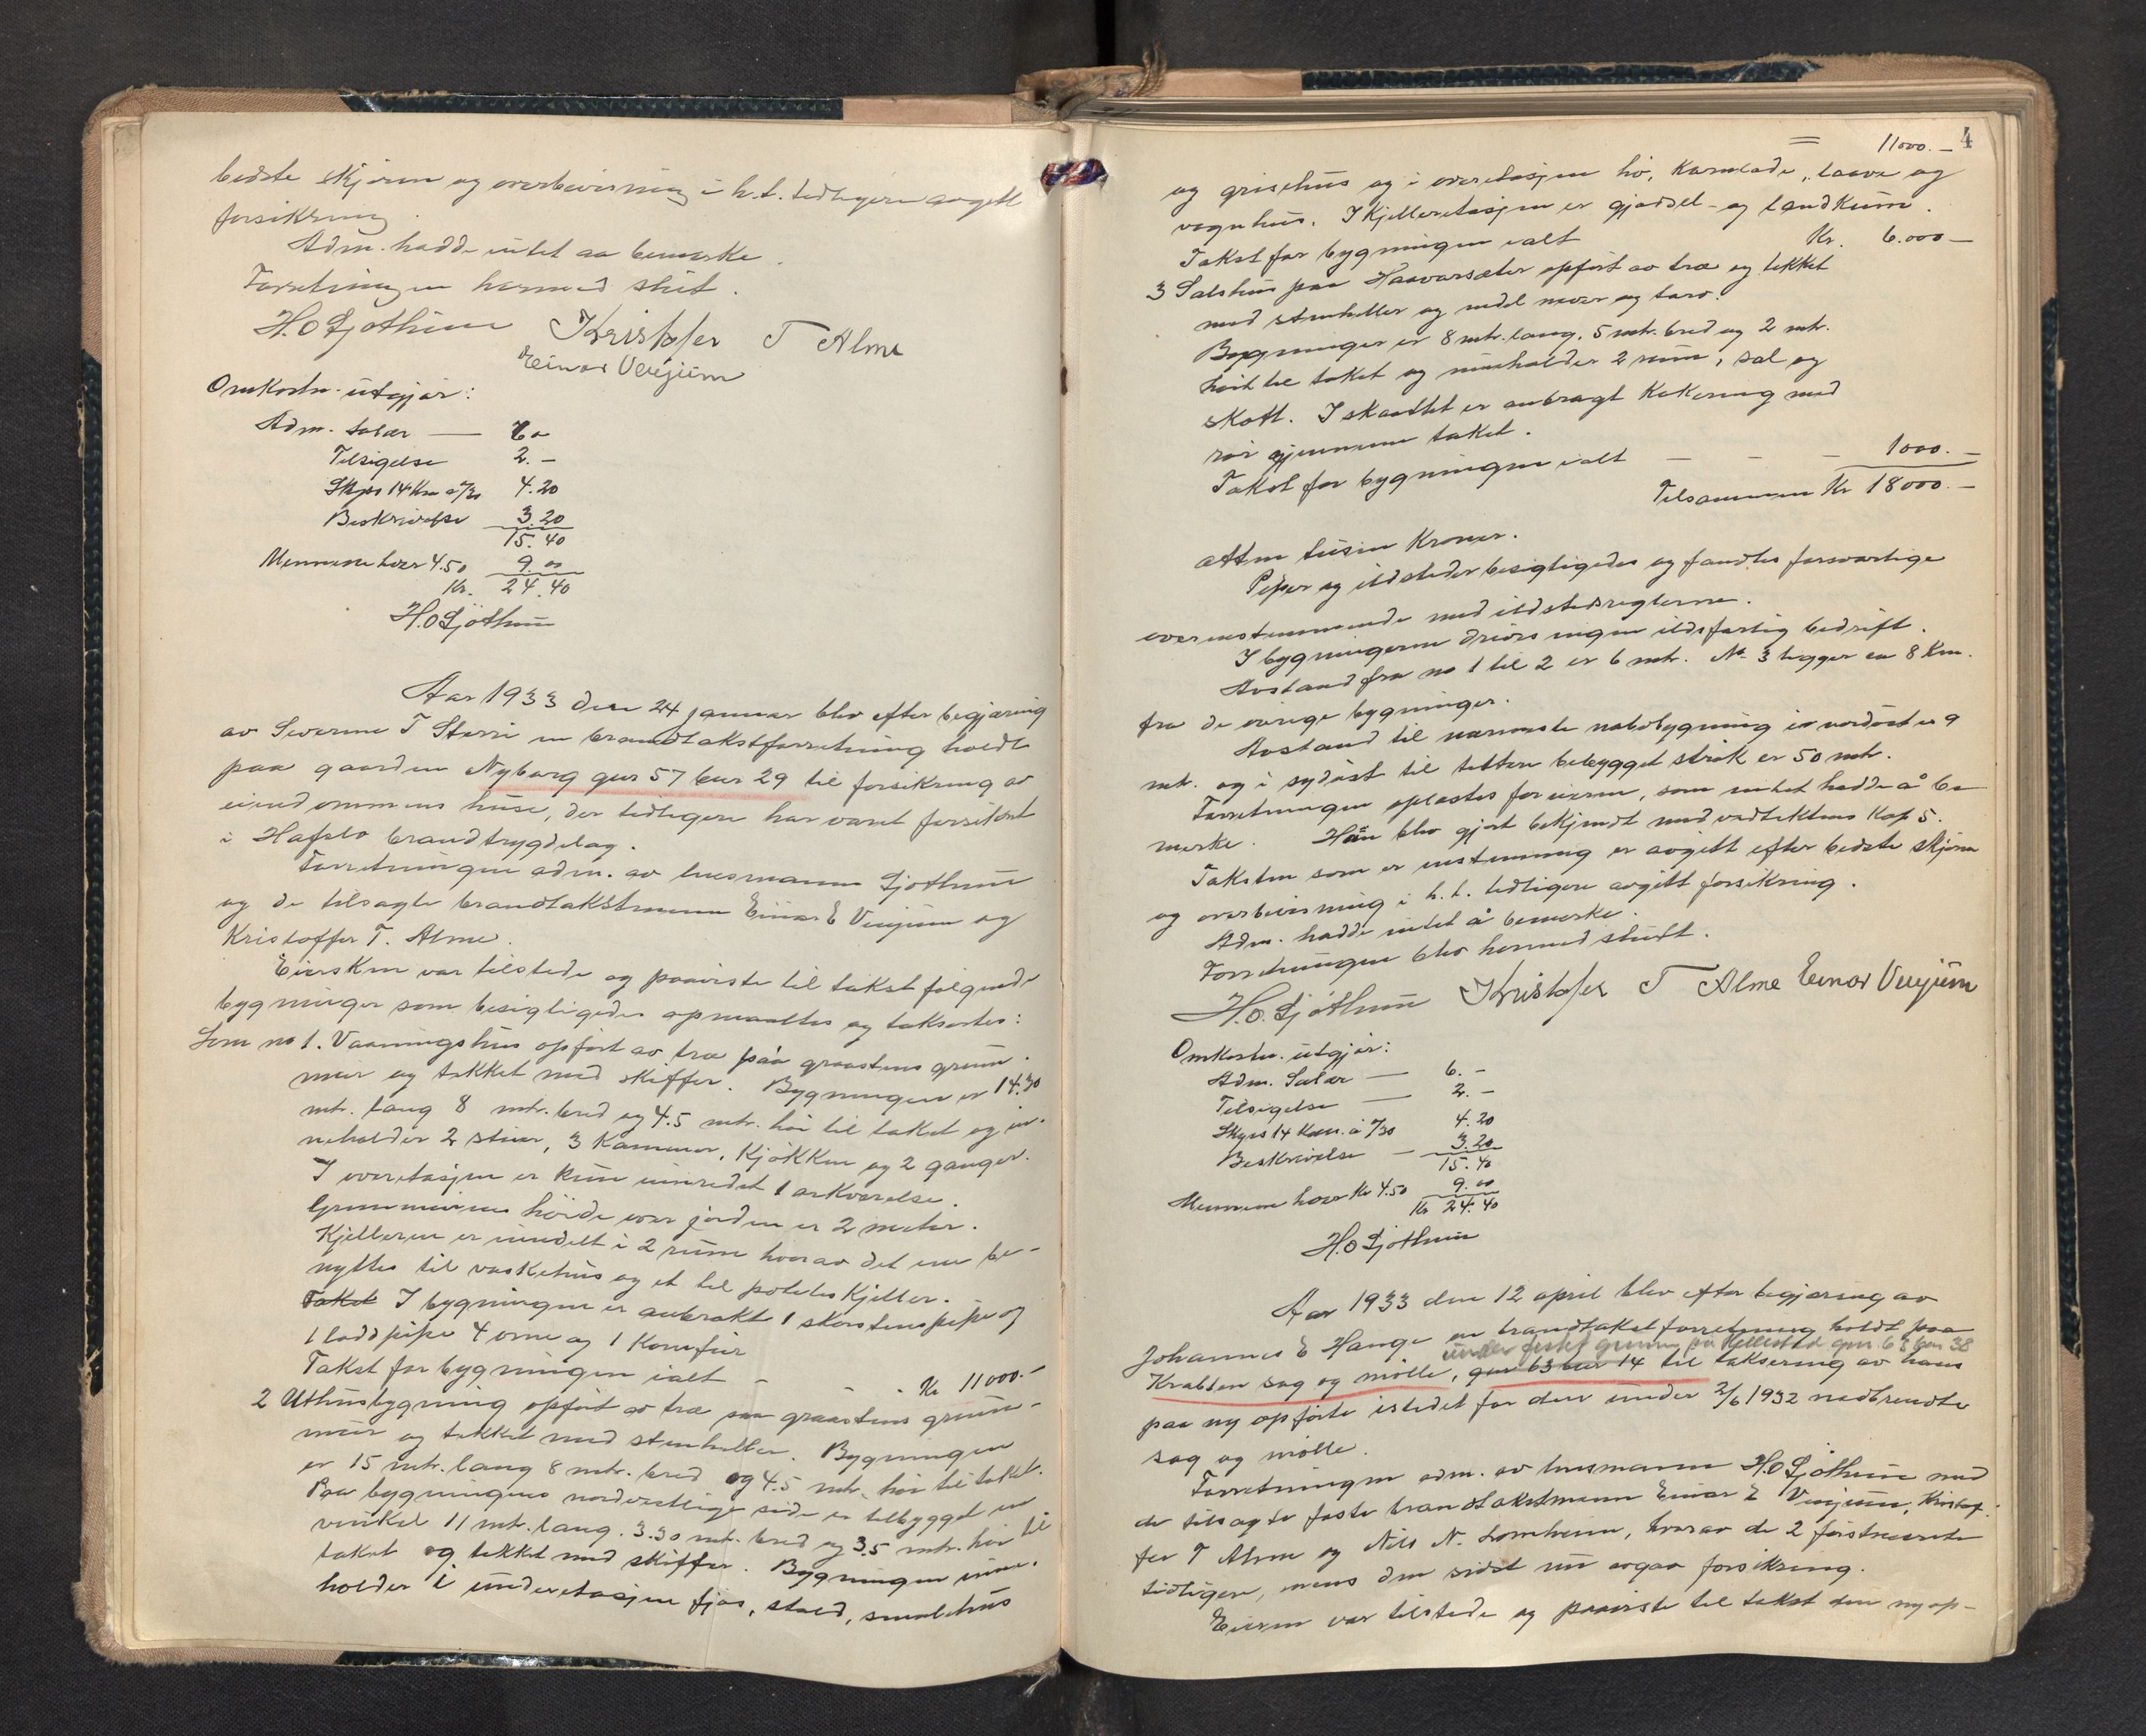 bedste skjönn og overbevisning i h.t. tidligere avgitt
forsikring.
Adm. hadde intet aa bemerke.
Forretningen hermed slut.
H. O Sjøthun Kristofer T Alme
Einar Venjum
Omkostn. utgjør:
Adm. salær — 6.–
Tilsigelse 2.–
Skyss 14 Km a /30 4.20
Beskrivelse 3.20
15.40
Mennene hver 4.50 9.00
Kr. 24.40
H. O Sjøthun
Aar 1933 den 24 januar blev efter begjæring
av Severine T Sterri en brandtakstforretning holdt
paa gaarden Nyborg gnr 57 bnr 29 til forsikring av
eiendommens huse, der tidligere har været forsikret
i Hafslo brandtrygdelag.
Forretningen adm. av lensmann Sjøthun
og de tilsagte brandtakstmenn Einar E Venjum og
Kristoffer T. Alme.
Eiersken var tilstede og paaviste til takst følgende
bygninger som besigtigedes opmaaltes og taksertes:
Som no 1. Vaaningshus opført av træ paa graastens grunn-
mur og tekket med skiffer. Bygningen er 14.30
mtr. lang 8 mtr. bred og 4.5 mtr. høi til taket og in-
neholder 2 stuer, 3 Kammer, Kjøkken og 2 ganger.
I overetasjen er kun innredet 1 arkværelse.
Grunnmurens høide over jorden er 2 meter.
Kjelleren er inndelt i 2 rum hvorav det ene be-
nyttes til vaskehus og et til potetes Kjeller.
Taket I bygningen er anbrakt 1 skorstenspipe og
1 loddpipe 4 ovne og 1 Komfür
Takst for bygningen ialt - - - Kr 11000.–
2 Uthusbygning opført av træ paa graastens grunn-
mur og tekket med stenheller. Bygningen
er 15 mtr. lang 8 mtr. bred og 4.5 mtr. høi til taket.
Paa bygningens nordvestlige side er tilbygget en
vinkel 11 mtr. lang. 3.30 mtr. bred og 3.5 mtr. høi til
taket og tekket med skiffer. Bygningen inne-
holder i underetasjen fjøs, stald, smalehus
4
11000.–
og grisehus og i overetasjen hø, Kornlade, laave og
vognhus. I Kjelleretasjen er gjødsel- og landkum.
Takst for bygningen ialt Kr. 6.000–
3 Selshus paa Haavarsæter opført av træ og tekket
med stenheller og endel never og torv.
Bygningen er 8 mtr. lang, 5 mtr. bred og 2 mtr.
høit til taket og inneholder 2 rum, sal og
skott. I skottet er anbragt Kokering med
rør gjennem taket.
Takst for bygningen ialt – – – 1000.–
Tilsammen Kr 18000.–
atten tusin Kroner.
Piper og ildsteder besigtigedes og fandtes forsvarlige
overenstemmende med ildstedsreglerne.
I bygningerne drives ingen ildsfarlig bedrift.
Avstand fra no 1 til 2 er 6 mtr. No 3 ligger ca 8 Km.
fra de øvrige bygninger.
Avstand til nærmeste nabobygning i nordøst er 9
mtr. og i sydøst til tettere bebygget strøk er 50 mtr.
Forretningen oplestes for eieren, som intet hadde å be-
merke. Hun blev gjort bekjendt med vedtektens Kap 5.
Taksten som er enstemmig er avgitt efter bedste skjønn
og overbevisning i h. t. tidligere avgitt forsikring.
Adm. hadde intet å bemerke.
Forretningen blev hermed slutt.
H. O. Sjøthun Kristofer T Alme Einar Venjum
Omkostn. utgjør:
Adm. Salær — 6.–
Tilsigelse — 2.–
Skyss 14 Km. á /30 4.20
Beskrivelse — 3.20
15.40
Mennene hver Kr 4.50 9.00
Kr 24.40
H. O Sjøthun
Aar 1933 den 12 april blev efter begjæring av
Johannes E Hauge en brandtakstforretning holdt paa
under festet grunn på Hillestad gnr 63 bnr 38
Krabben sag og mølle, gnr 63 bnr 14 til taksering av hans
paa ny opførte istedet for den under 2/6 1932 nedbrendte
sag og mølle.
Forretningen adm. av lensmann H. O Sjøthun med
de tilsagte faste brandtakstmenn Einar E Venjum, Kristof-
fer T Alme og Nils N. Lomheim, hvorav de 2 førstnevnte
tidligere, mens den sidst nu avgav forsikring.
Eieren var tilstede og paaviste til takst den nyop-